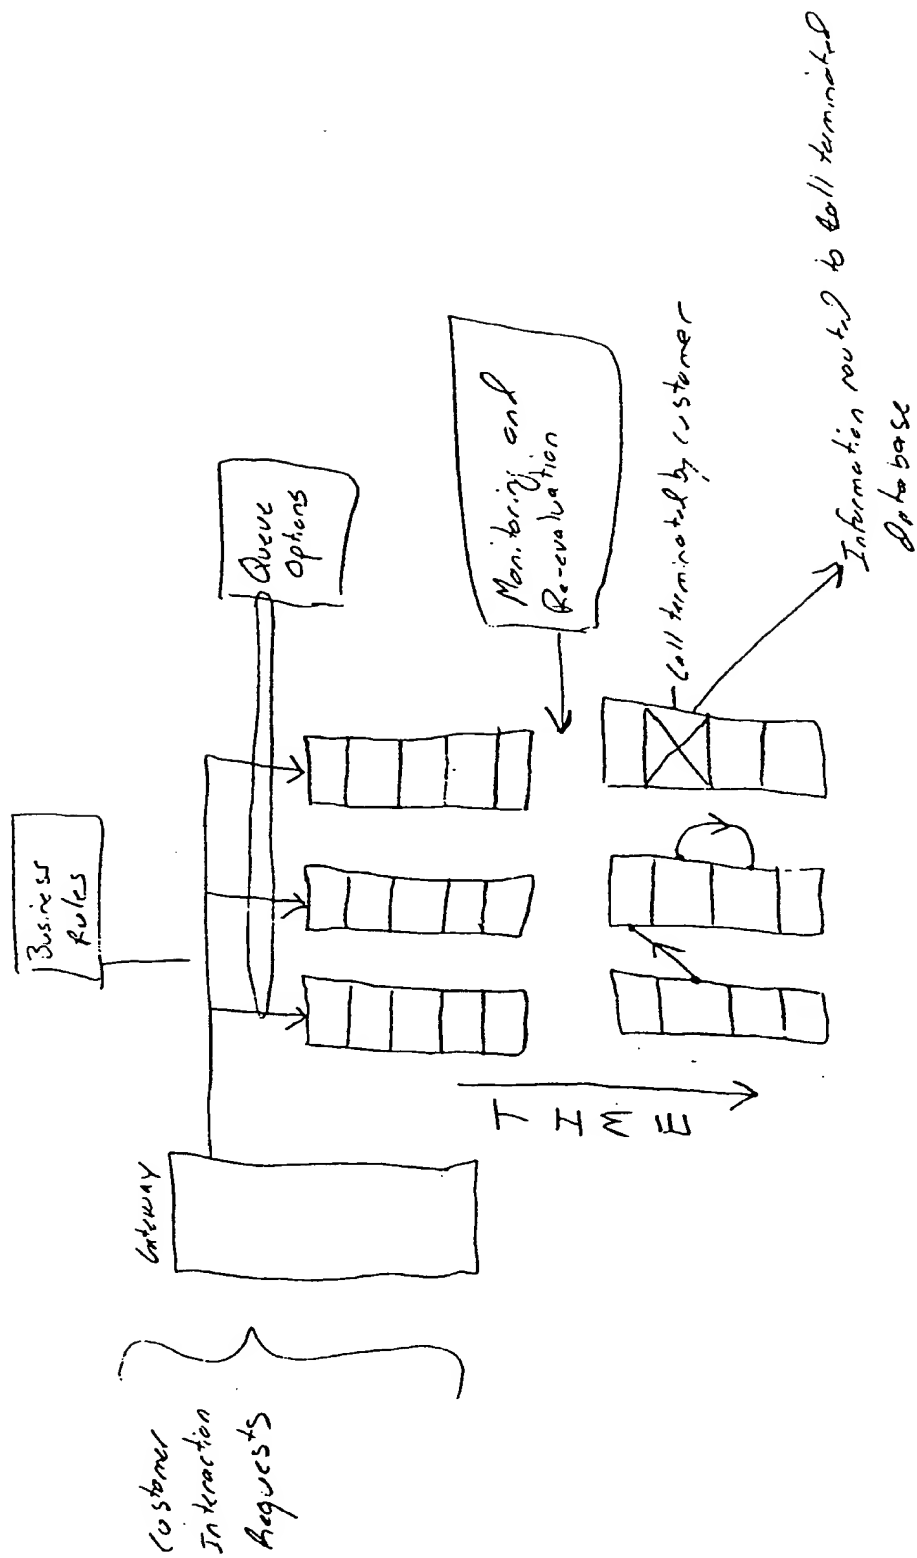 Customer
Interaction
Requests
Gateway
Business
Rules
Queue
Options
TIME
Monitoring and
Re-evaluation
Call terminated by customer
Information routed to call terminated
Database